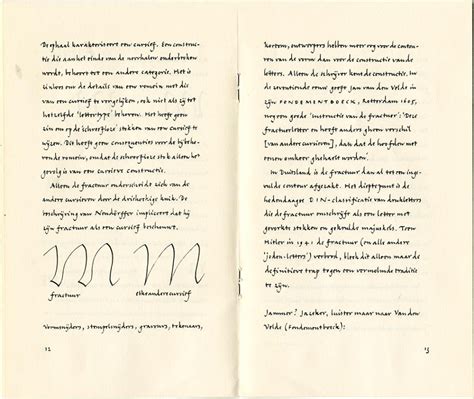 De ophaal karakteriseert een cursief. Een construc-
tie die aan het einde van de neerhaler onderbroken
wordt, behoort tot een andere categorie. Het is
zinloos om de details van een romein met die
van een cursief te vergelijken, ook niet als zij tot
hetzelfde 'lettertype' behoren. Het heeft geen
zin om op de schreefloze stokken van een cursief te
wijzen. Dit heeft geen consequenties voor de bijbeho-
rende romein, omdat de schreefloze stok alleen het
gevolg is van een cursieve constructie.
Alleen de fractuur onderscheidt zich van de
andere cursieven door de driehoekige knik. De
beschrijving van Neudörffer impliceert dat hij
zijn fractuur als een cursief beschouwt.
M M
fractuur elke andere cursief
Vormsnijders, stempelsnijders, graveurs, tekenaars,
12
kortom, ontwerpers hebben meer oog voor de contou-
ren van de vorm dan voor de constructie van de
letters. Alleen de schrijver kent de constructie. In
de zeventiende eeuw geeft Jan van den Velde in
zijn FONDEMENTBOECK, Rotterdam 1605,
nog een goede 'instructie van de fractuer': 'Deze
fractuerletter en heeft anders gheen verschil
[van andere cursieven], dan dat de hoofden met
eenen omkeer ghehaelt worden'.
In Duitsland is de fractuur dan al tot een inge-
vulde contour afgezakt. Het dieptepunt is de
hedendaagse DIN-classificatie van drukletters
die de fractuur omschrijft als een letter met
gevorkte stokken en gekrulde majuskels. Toen
Hitler in 1941 de fractuur (en alle andere
'joden-letters') verbood, bleek dit alleen maar de
definitieve trap tegen een vermolmde traditie
te zijn.
Jammer? Jazeker, luister maar naar Van den
Velde (Fondementboeck):
13